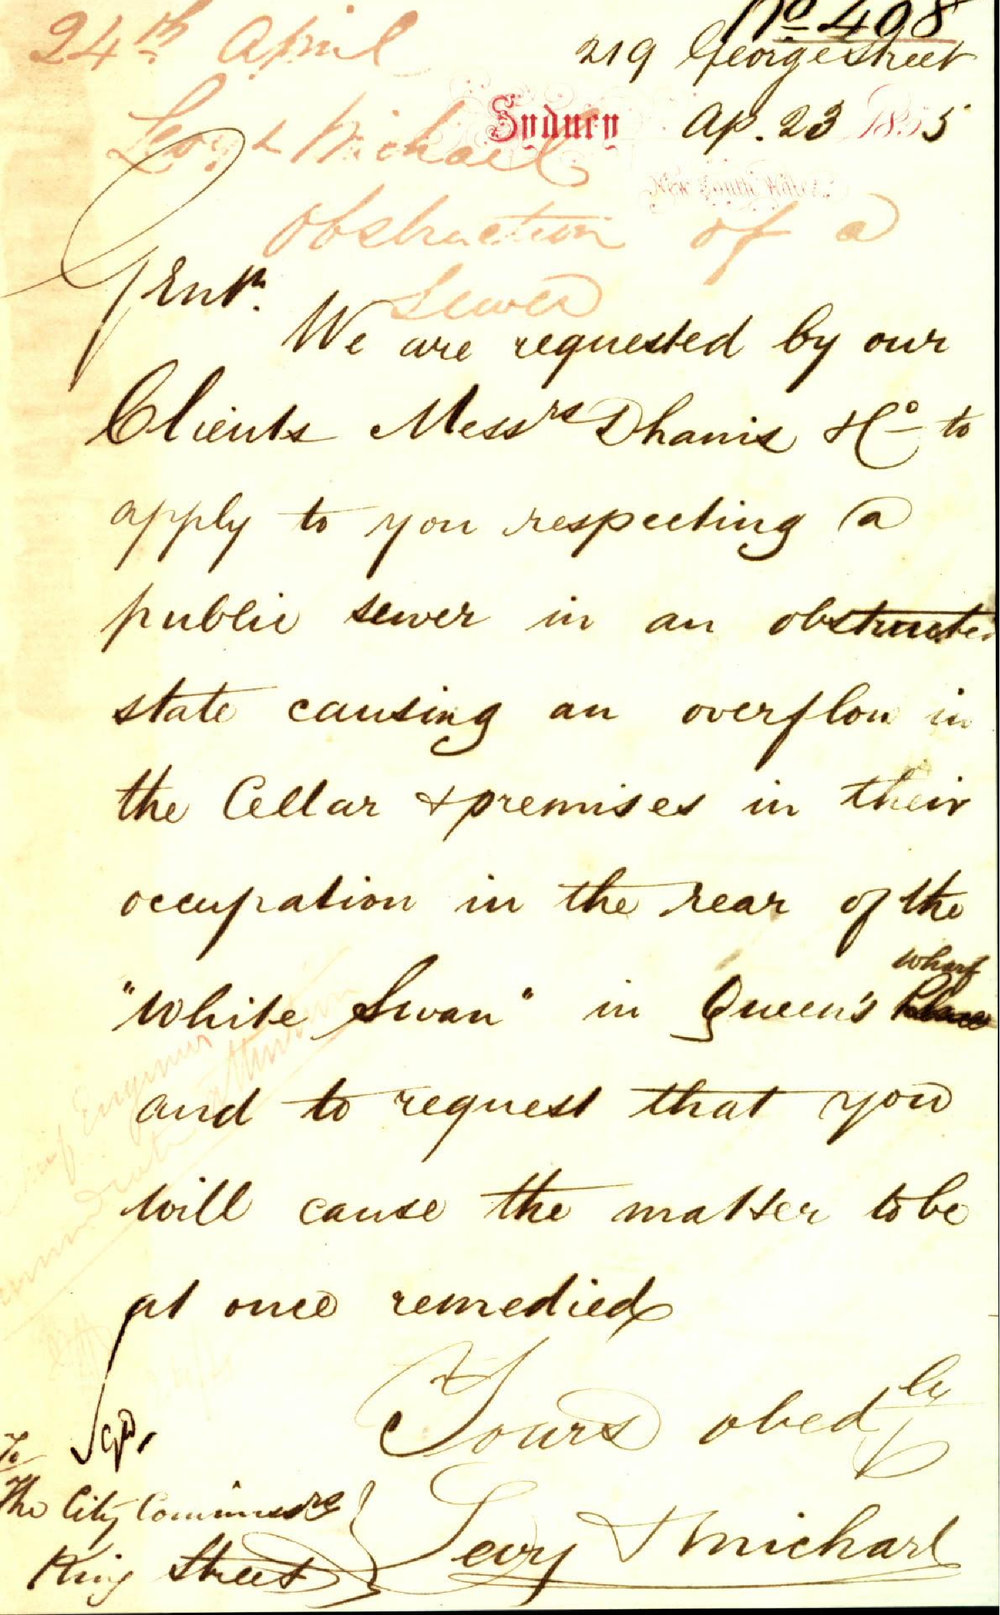 No 408
24th April
219 George Street
Sydney Ap. 23 1855
New South Wales
Levy & Michael
Obstruction of a
Sewer
Gentn.
We are requested by our
Clients Messrs Dhanis & Co to
apply to you respecting a
public sewer in an obstructed
state causing an overflow in
the Cellar & premises in their
occupation in the rear of the
"White Swan" in Queen's Wharf
and to request that you
will cause the matter to be
at once remedied
Yours obedly
Levy & Michael
To
The City Commissrs
King Street